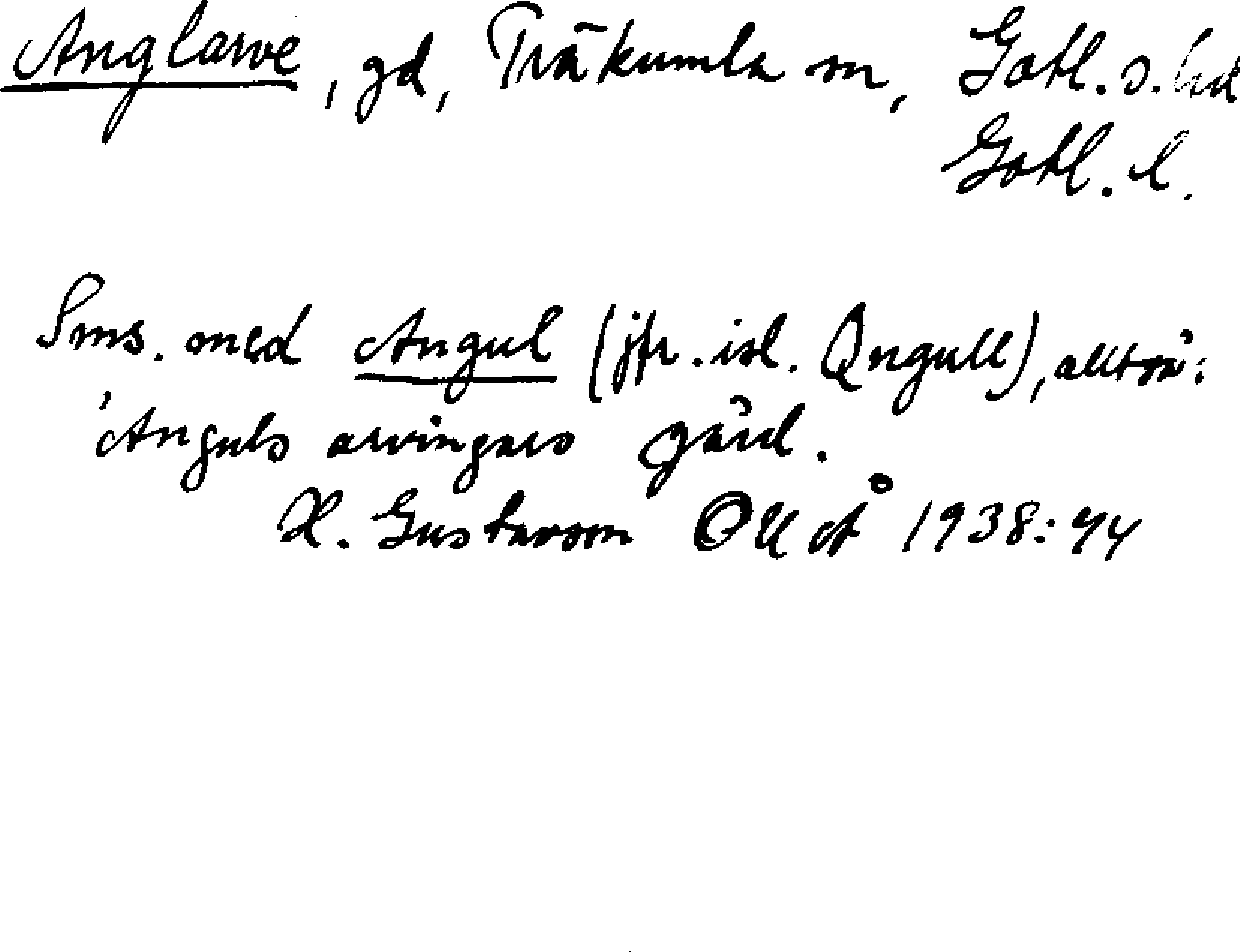 Anglarve, gd, Träkumla sn, Gotl. s. hd
Gotl. l.
Sms. med Angul (jfr. isl. Ǫngull), alltså:
'Anguls arvingars gård.
H. Gustavson OUÅ 1938: 44